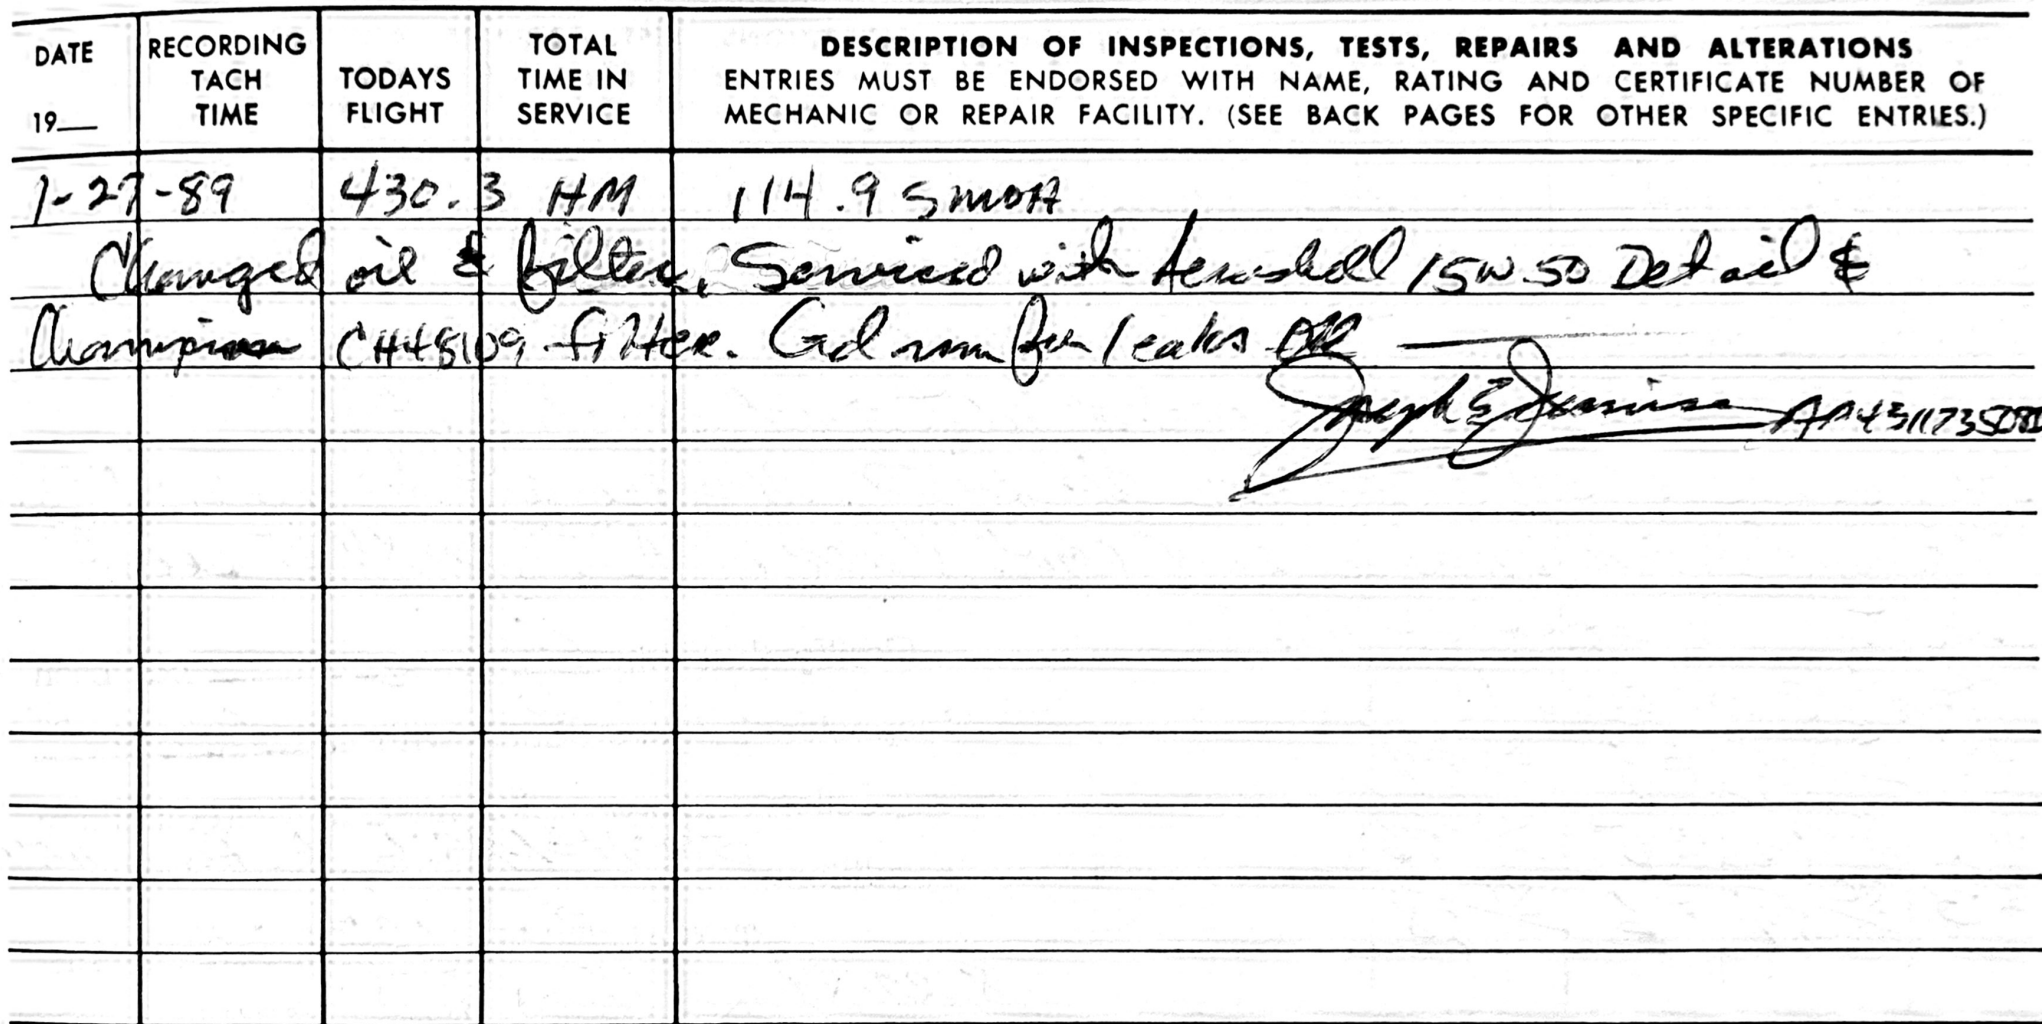 DATE RECORDING TACH TIME TODAYS FLIGHT TOTAL TIME IN SERVICE DESCRIPTION OF INSPECTIONS, TESTS, REPAIRS AND ALTERATIONS
19__ ENTRIES MUST BE ENDORSED WITH NAME, RATING AND CERTIFICATE NUMBER OF
MECHANIC OR REPAIR FACILITY. (SEE BACK PAGES FOR OTHER SPECIFIC ENTRIES.)
1-27-89 430.3 HM 114.9 SMOH
Changed oil & filter. Serviced with Aeroshell 15W50 Det oil &
Champion CH48109 filter. Gd run for leaks OK
Joseph E